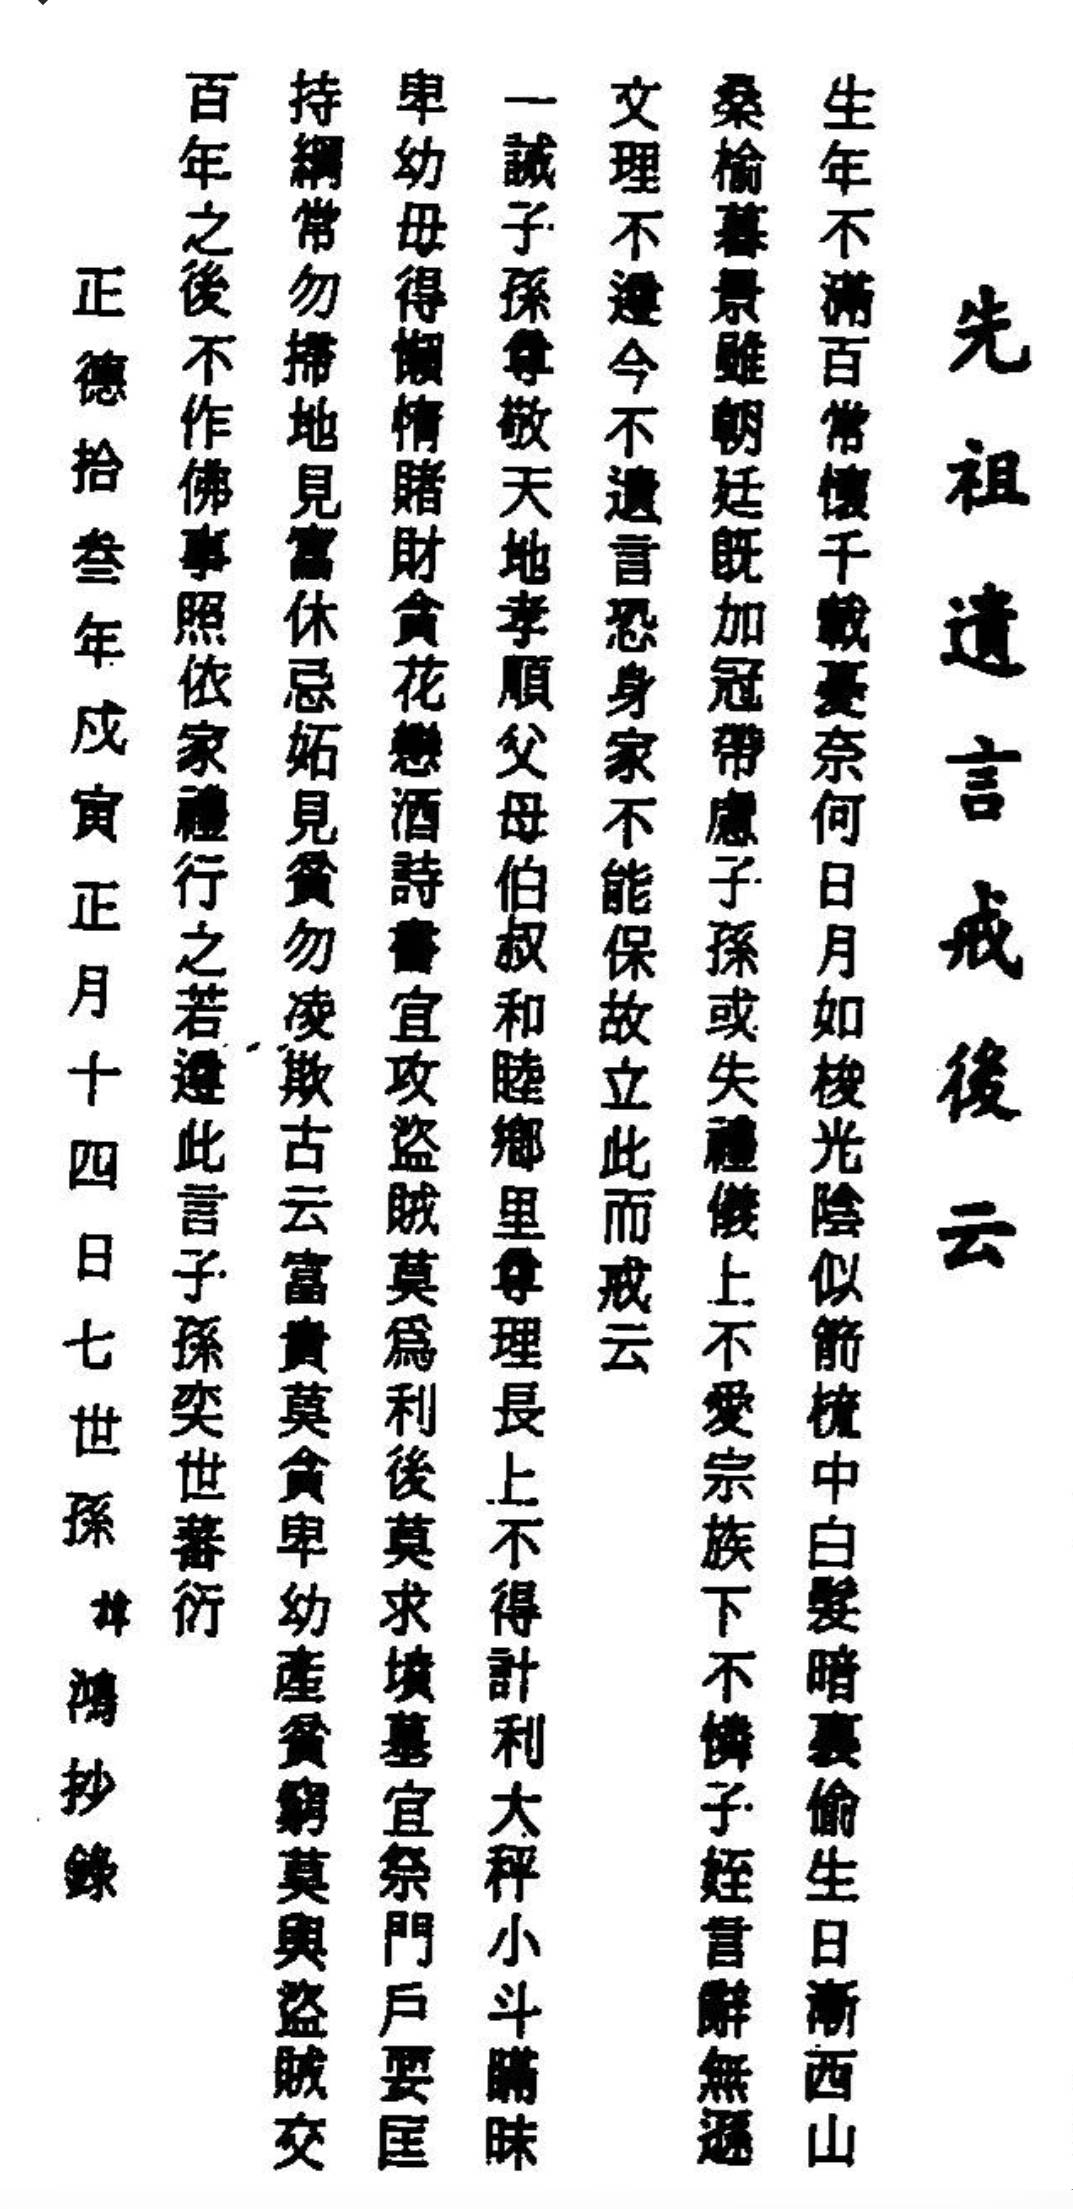 先祖遺言戒後云
生年不滿百常懷千載憂奈何日月如梭光陰似箭梳中白髮暗裏偷生日漸西山
桑榆暮景雖朝廷既加冠帶慮子孫或失禮儀上不愛宗族下不憐子姪言辭無遜
文理不遵今不遺言恐身家不能保故立此而戒云
一誡子孫尊敬天地孝順父母伯叔和睦鄉里尊理長上不得計利大秤小斗瞞昧
卑幼毋得懶惰賭財貪花戀酒詩書宜攻盜賊莫爲利後莫求墳墓宜祭門戶要匡
持綱常勿掃地見富休忌妬見貧勿凌欺古云富貴莫貪卑幼產貧窮莫與盜賊交
百年之後不作佛事照依家禮行之若遵此言子孫奕世蕃衍
正德拾叁年戊寅正月十四日七世孫諱鴻抄錄